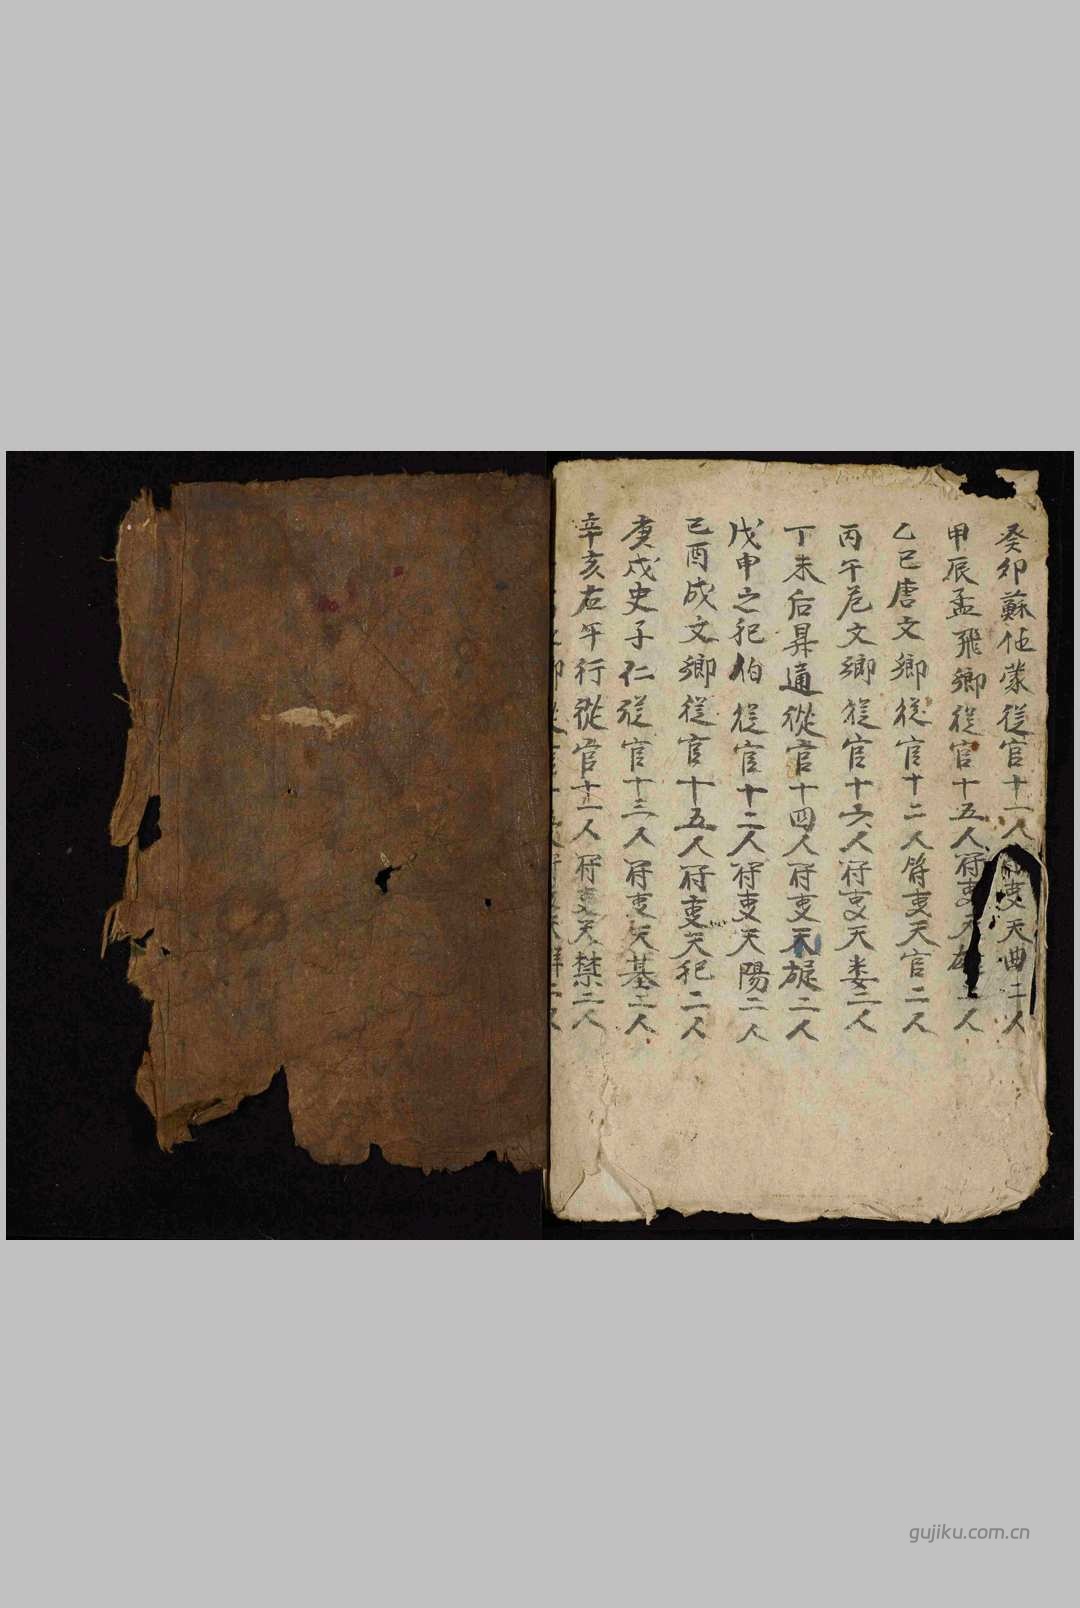 癸卯蘇他蒙從官十一人符吏天曲二人
甲辰孟飛卿從官十五人符吏天雄二人
乙巳唐文卿從官十二人符吏天官二人
丙午尼文卿從官十六人符吏天娄二人
丁未后昇通從官十四人符吏天㫌二人
戊申之犯伯從官十二人符吏天陽二人
己酉成文卿從官十五人符吏天犯二人
庚戌史子仁從官十三人符吏天基二人
辛亥右午行從官十一人符吏天禁二人
gujiku.com.cn